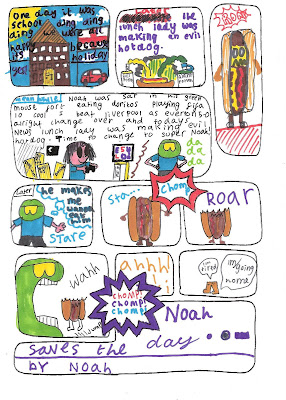 One day it was
school ding ding
ding we were all
happy because
its holiday
yes!
Later the
lunch lady was
making an evil
hotdog.
mean while Noah was sat in his green
mouse fort eating doritos playing fifa
10 cool I beat liverpool as everton 6-0
alright change over and todays
News lunch lady was making evil
hotdog Time to change to super Noah!
da
da
da
Later
he makes
me
wanna
eat
him
STARE
Sto...
chomp
ROAR
wahh
ahhh
chomp!
chomp!
chomp!
im
tired
im
going
home
Noah
saves the day...
by Noah